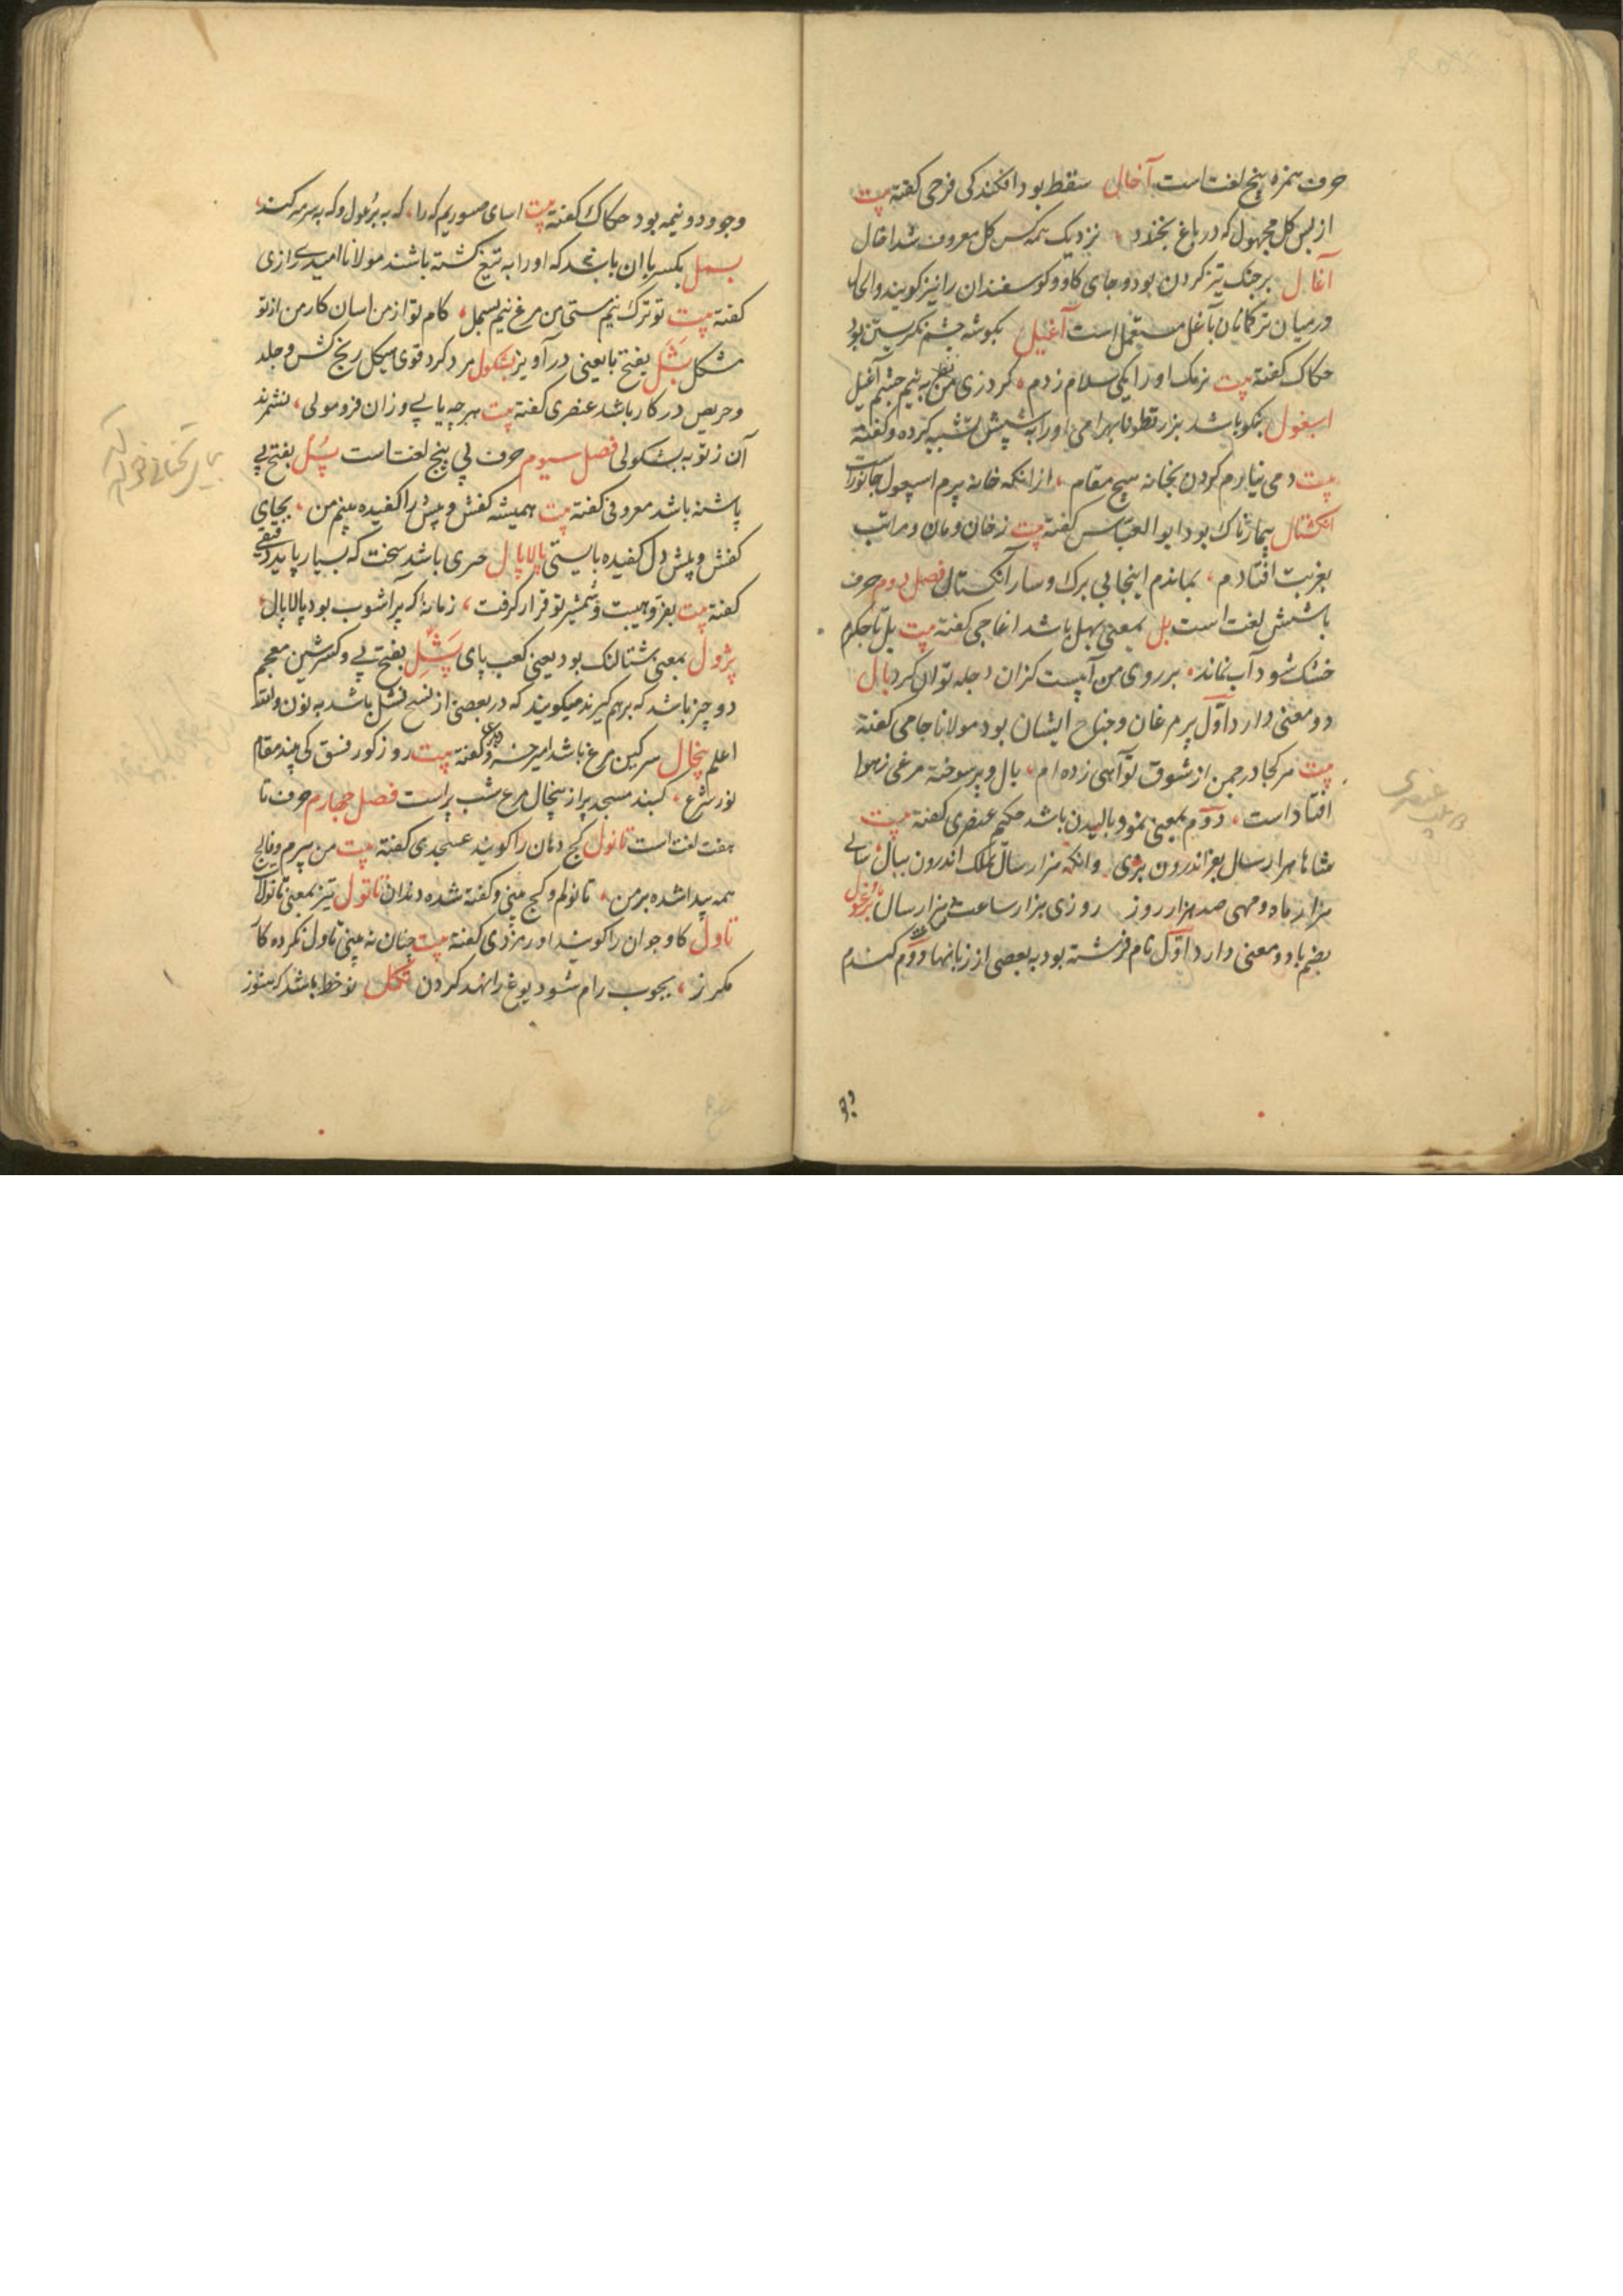 حرف همزه پنج لغت است آخال سقط بود افکندکی فرخی کفته بیت
از بس کل مجهول که در باغ بخندد نزدیک همه کس کل معروف شد آخال
آغال بر جنک تیز کردن بود و جای کاو و کوسفندان را نیز کویند و الحال
در میان ترکمانان باغل مستعمل است آغیل بکوشه چشم نکریستن بود
حکاک کفته بیت نرمک او را یکی سلام زدم کرد زی من نظر به نیم چشم آغیل
اسبغول بنکو باشد بزر قطونا بهرامی او را به شپش تشبیه کرده و کفته
بیت دمی نیارم کردن بخانه هیچ مقام از انکه خانه پرم اسپغول جانوراست
انکشتال بیمارناک بود ابو العباس کفته بیت ز خان و مان و مراتب
بغربت افتادم بماندم اینجا بی برک و ساز انکشتال فصل دوم حرف
با شش لغت است بل بمعنی بهل باشد اغاجی کفته بیت بل تا جکرم
خشک شود آب نماند بر روی من آبیست کزان دجله توان کرد بال
دو معنی دارد اول پر مرغان و جناح ایشان بود مولانا جامی کفته
بیت هر کجا در چمن از شوق تو آهی زده ام بال و پر سوخته مرغی ز هوا
افتاد است دوم بمعنی نمو و بالیدن باشد حکیم عنصری کفته بیت
شاها هزار سال بعز اندرون بزی وانکه هزار سال بملک اندرون ببال سالی
هزار ماه و مهی صد هزار روز روزی هزار ساعت هزار سال برغول
بضم با دو معنی دارد اول نام فرشته بود به بعضی از زبانها دوم کندم
وجو
وجو دو نیمه بود حکاک کفته بیت اسیای که را که به برغول و که به سرمه کند
بسمل بکسر با ان باشد که او را به تیغ کشته باشند مولانا امیدی رازی
کفته بیت تو ترک نیم مستی من مرغ نیم بسمل کام تو از من اسان کار من از تو
مشکل بشکل بفتح با یعنی در آویز بشکول مرد کرد قوی هیکل رنج کش و جلد
و حریص در کار باشد عنصری کفته بیت هر چه یابی وزان فرو مولی نشمرند
آن ز تو به بشکولی فصل سیوم حرف پی پنج لغت است پل بفتح پی
پاشنه باشد معروفی کفته بیت همیشه کفش و پلش را کفیده بینم من بجای
کفش و پلش دل کفیده بایستی پالاپال حری باشد سخت که بسیار پاید دقیقی
کفته بیت بفر و هیبت و شمشیر تو قرار کرفت زمانهٔ که پر آشوب بود پالاپال
پژول بمعنی شتالنک بود یعنی کعب پای پشل بفتح پی و کسر شین معجم
دو چیز باشد که برهم کیرند میکویند که در بعضی از نسخ نشل باشد به نون والله
اعلم پیخال سرکین مرغ باشد امیر خسرو کفته بیت روز کور فسق کی بیند مقام
نور شرع کنبد مسجد پر از پیخال مرغ شب پر است فصل چهارم حرف تا
هفت لغت است تانول کج دهان را کویند عسجدی کفته بیت من پیرم و فالج
همه پیدا شده بر من تانولم و کج بینی و کفته شده دندان تاتول نیز بمعنی تانول
تاول کاو جوان را کویند اورمزدی کفته بیت چنان نه بینی تاول نکرده کار
مکر از بچوب رام شود یوغ را نهد کردن تکل نو خط باشد که هنوز